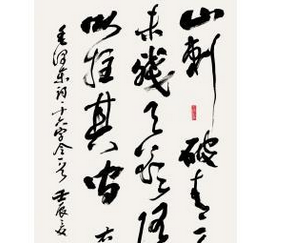 山刺破青天
未残天欲堕
以拄其间右
毛泽东词·十六字令一首 壬辰